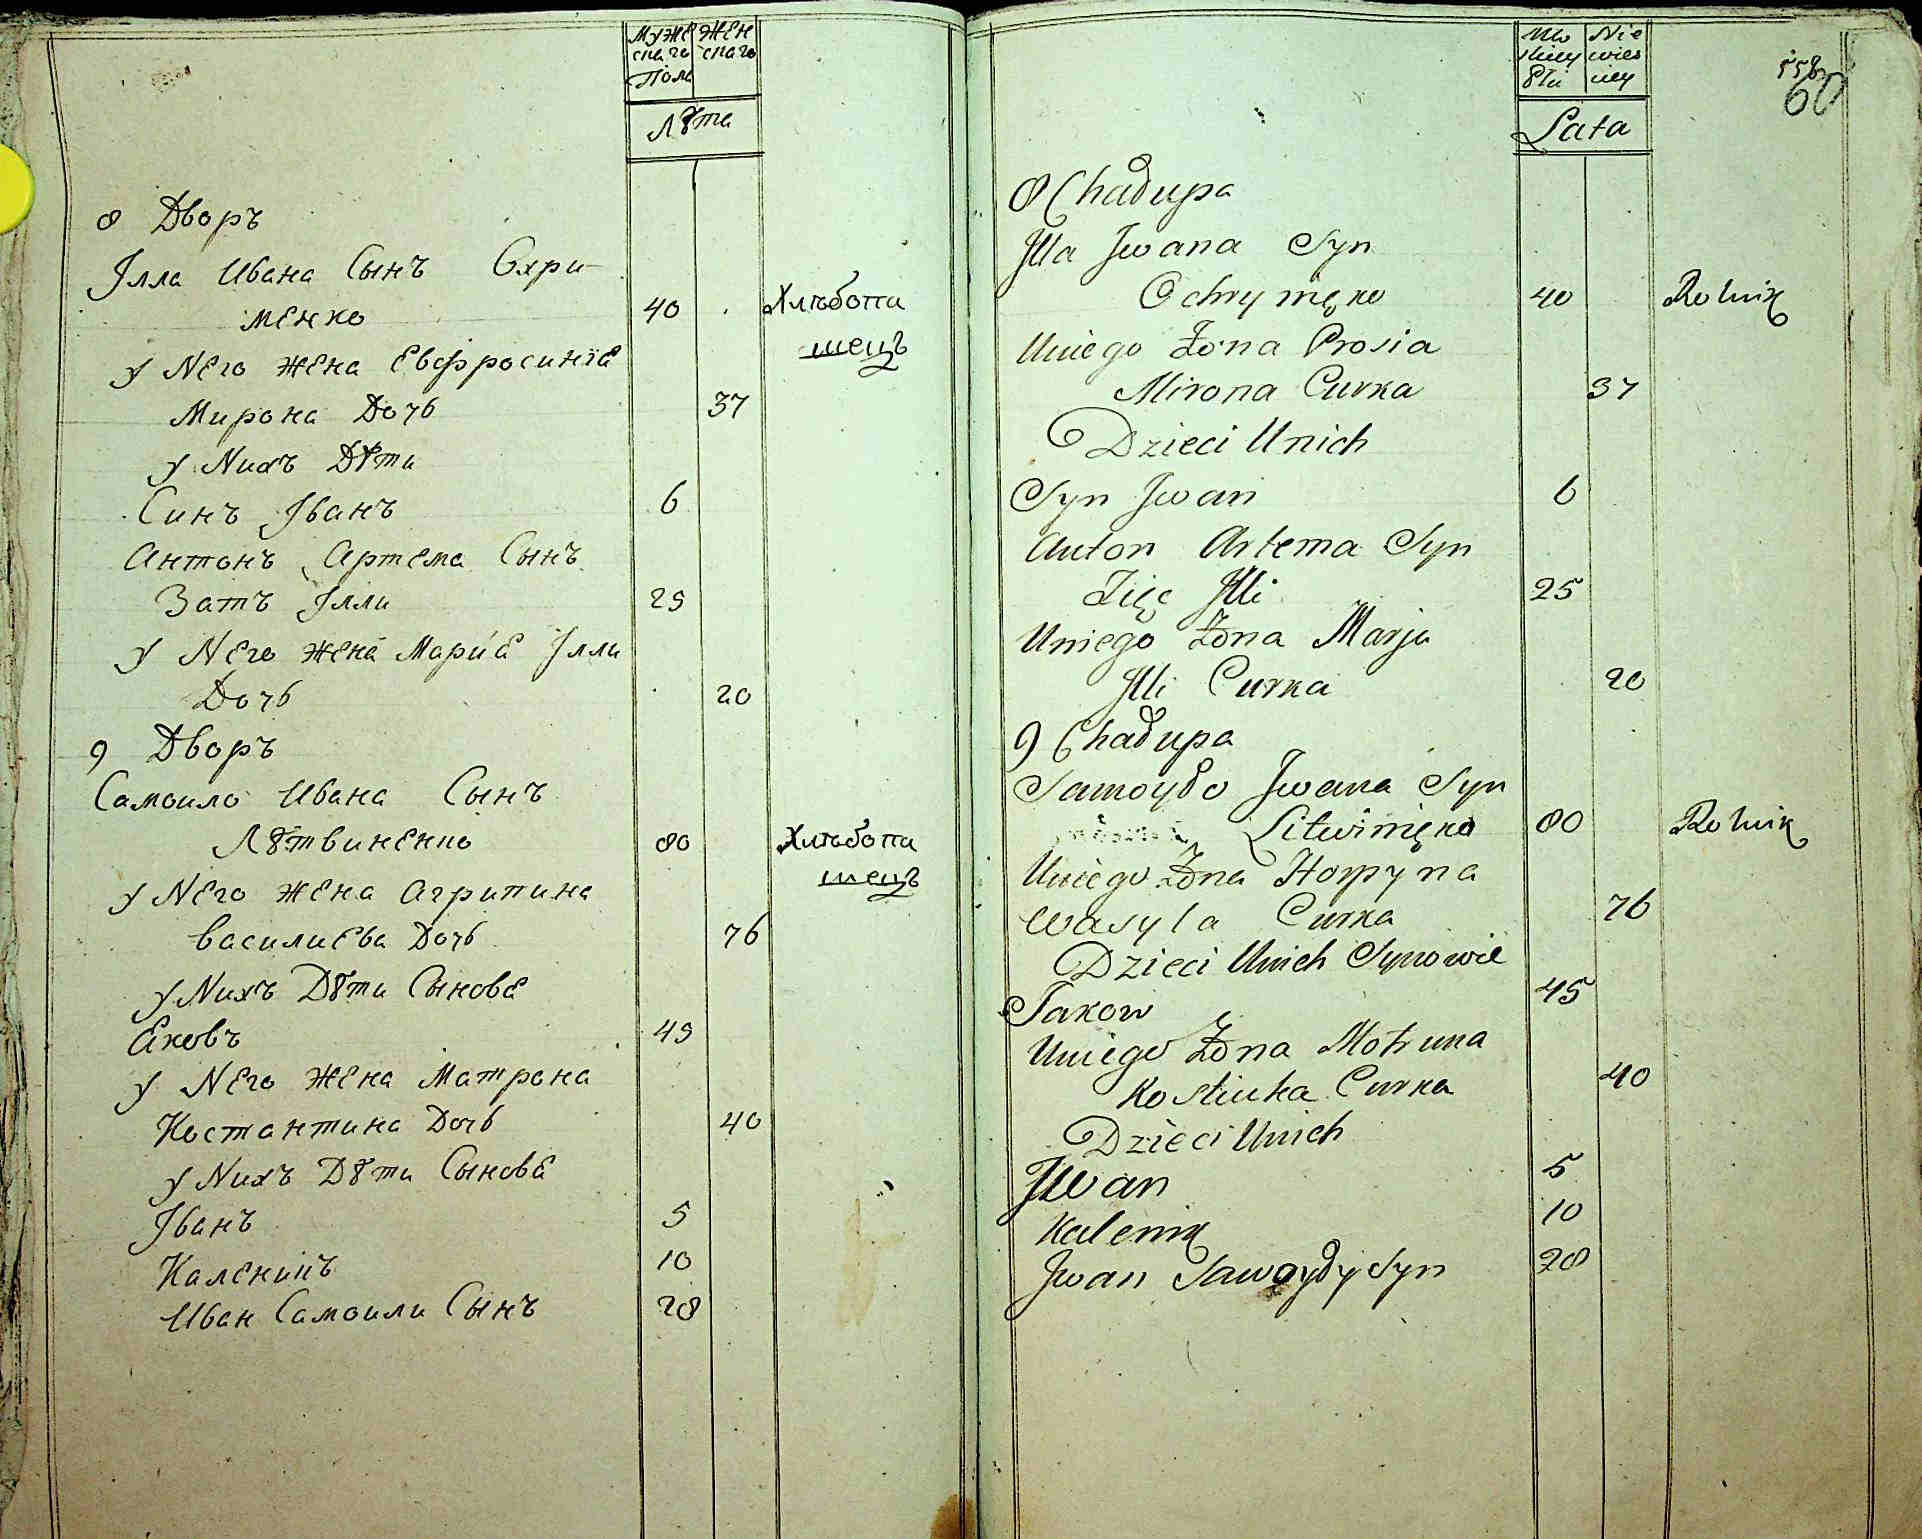 Муже Жен
скаго скаго
Пола
Лѣта
8 Дворъ
Iлла Ивана Сынъ Охри-
менко 40 Хлѣбопа
шецъ
у Него жена Евфросиніе
Мирона Дочь 37
у Нихъ Дѣти
Синъ Iванъ 6
Антонъ Артема Сынъ
Зать Iлли 25
у Него жена Маріе Iлли
Дочь 20
9 Дворъ
Самоило Ивана Сынъ
Лѣтвиненко 80 Хлѣбопа
шецъ
у Него жена Агрипина
Василиева Дочь 76
у Нихъ Дѣти Сынове
Ековъ 45
у Него жена Матрона
Костантина Дочь 40
у Нихъ Дѣти Сынове
Iванъ 5
Каленикъ 10
Иван Самоили Сынъ 28
Mę Nie
skiey wies
Płci ciey
Lata
558
60
8 Chałupa
Illa Jwana Syn
Ochrymęko 40 Rolnik
Uniego Zona Prosia
Mirona Curka 37
Dzieci Unich
Syn Jwan 6
Anton Artema Syn
Zięć Illi 25
Uniego Zona Marja
Illi Curka 20
9 Chałupa
Samoyło Jwana Syn
Litwinięko 80 Rolnik
Uniego Zona Horpyna
Wasyla Curka 76
Dzieci Unich Synowie
Jakow 45
Uniego Zona Motruna
Kostiuka Curka 40
Dzieci Unich
Jwan 5
Kalenik 10
Jwan Samoyły Syn 28